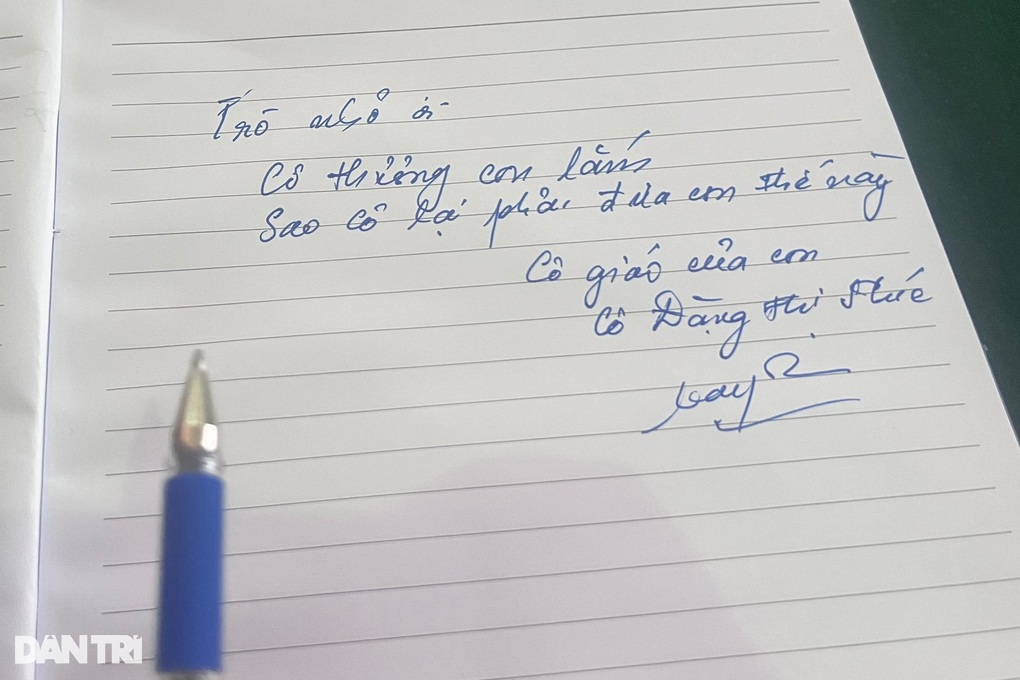 Trò nhỏ ơi
Cô thương con lắm
Sao cô lại phải đưa con thế này
Cô giáo của con
Cô Đặng thị Thức
DÂN TRÍ